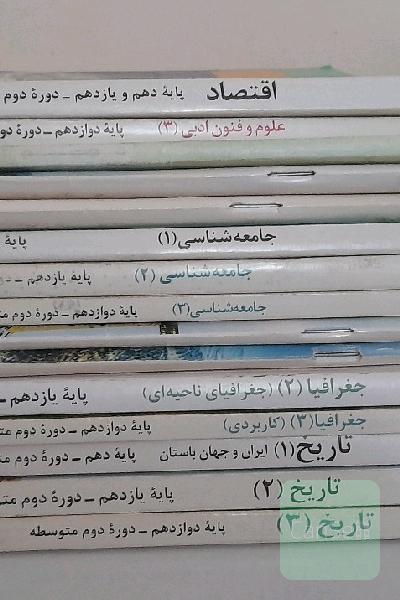 اقتصاد پایهٔ دهم و یازدهم ـ دورهٔ دوم
علوم و فنون ادبی (۳) پایهٔ دوازدهم ـ دورهٔ دو
جامعه‌شناسی (۱) پایهٔ
جامعه‌شناسی (۲) پایهٔ یازدهم ـ
جامعه‌شناسی (۳) پایهٔ دوازدهم ـ دورهٔ دوم مت
جغرافیا (۲) (جغرافیای ناحیه‌ای) پایهٔ یازدهم ـ
جغرافیا (۳) (کاربردی) پایهٔ دوازدهم ـ دورهٔ دوم مت
تاریخ (۱) ایران و جهان باستان پایهٔ دهم ـ دورهٔ دوم مت
تاریخ (۲) پایهٔ یازدهم ـ دورهٔ دوم مت
تاریخ (۳) پایهٔ دوازدهم ـ دورهٔ دوم متوسطه